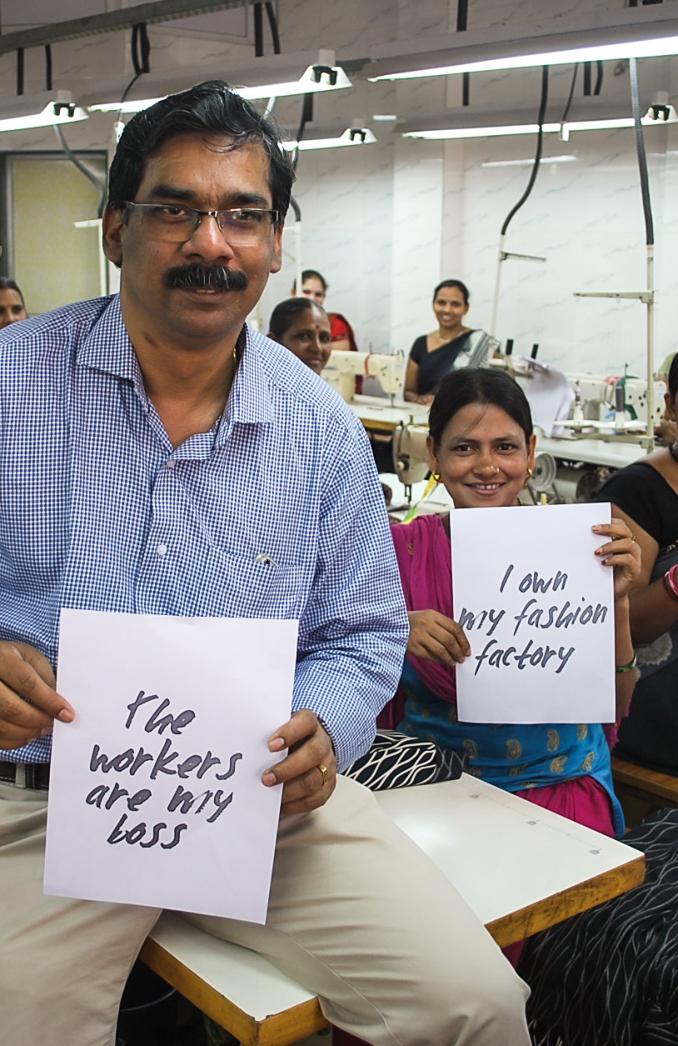 the
workers
are my
boss
I own
my fashion
factory